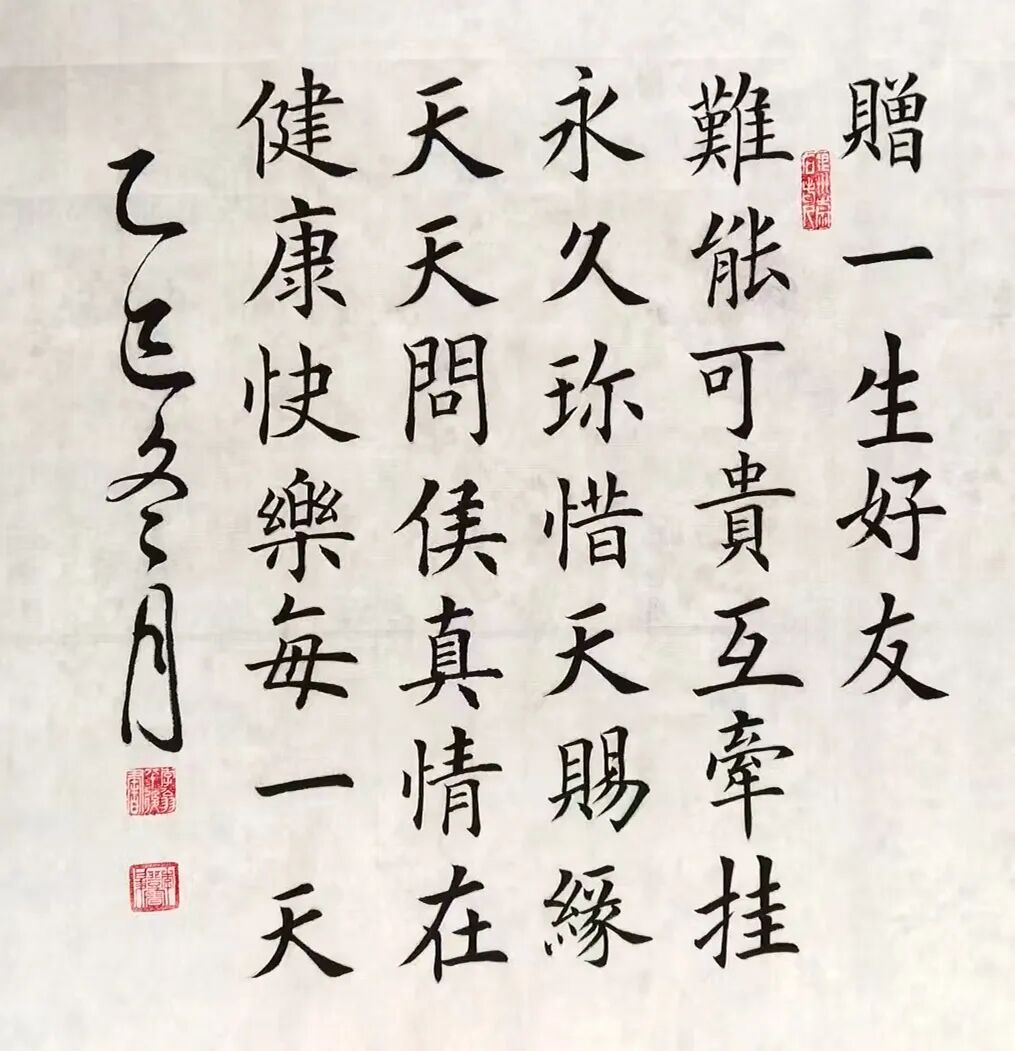 贈一生好友
難能可貴互牽挂
永久珎惜天賜緣
天天問侯真情在
健康快樂每一天
乙巳冬月